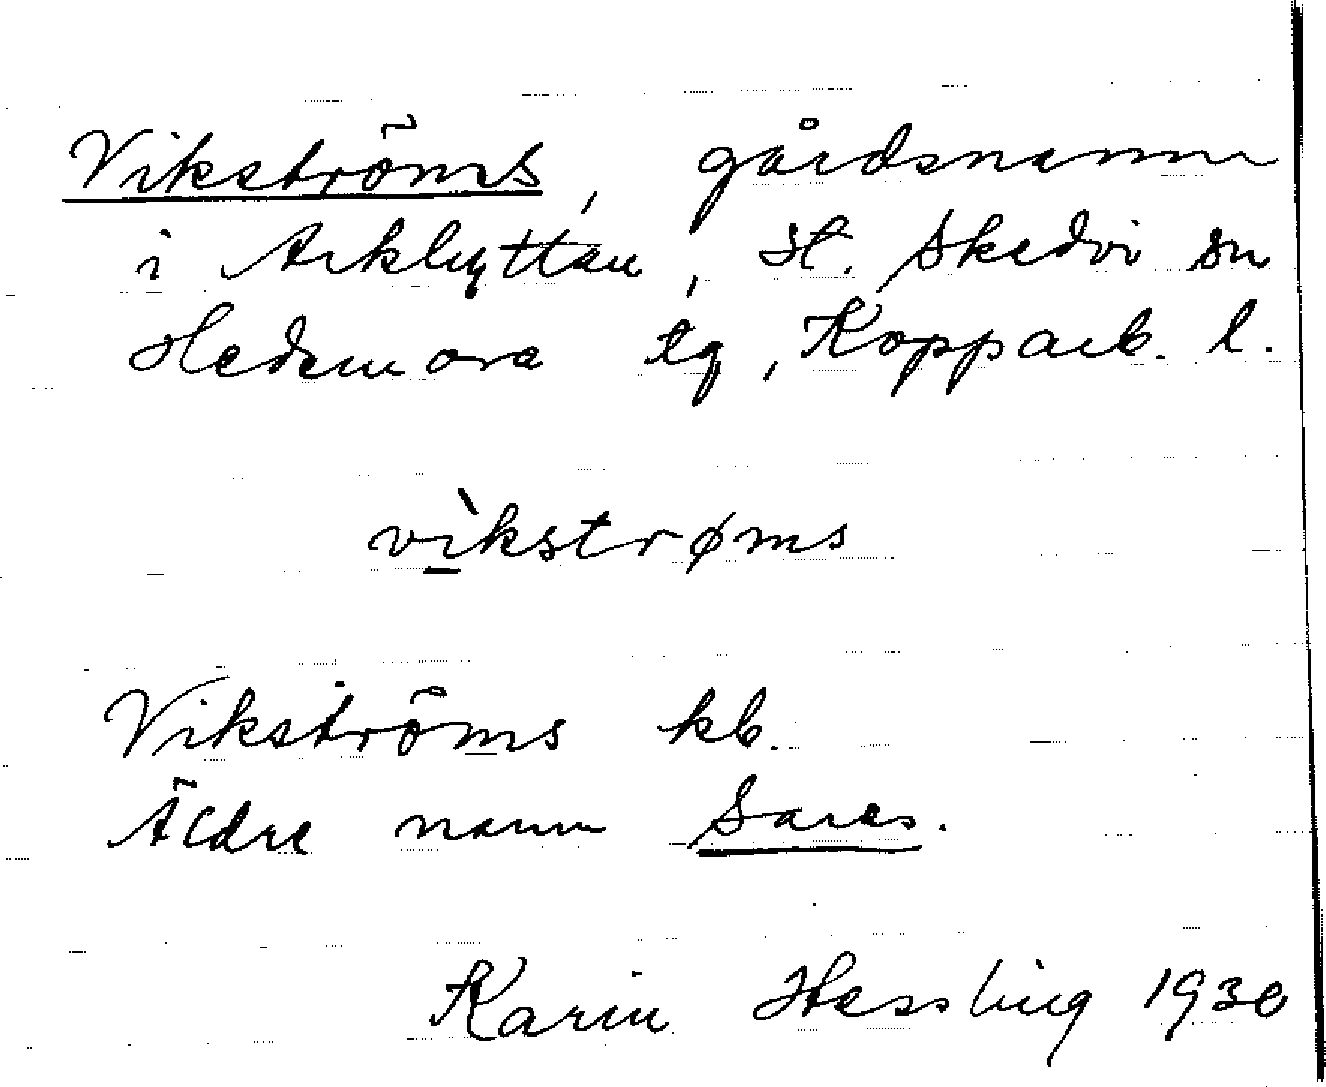 Vikströms, gårdsnamn
i Arkhyttan, St. Skedvi sn
Hedemora tg, Kopparb. l.
vìkstrøms
Vikströms kb.
Äldre namn Sares.
Karin Hessling 1930